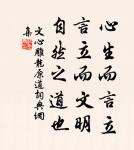 心生而言立
言立而文明
自然之道也
文心雕龍原道詞典網
集